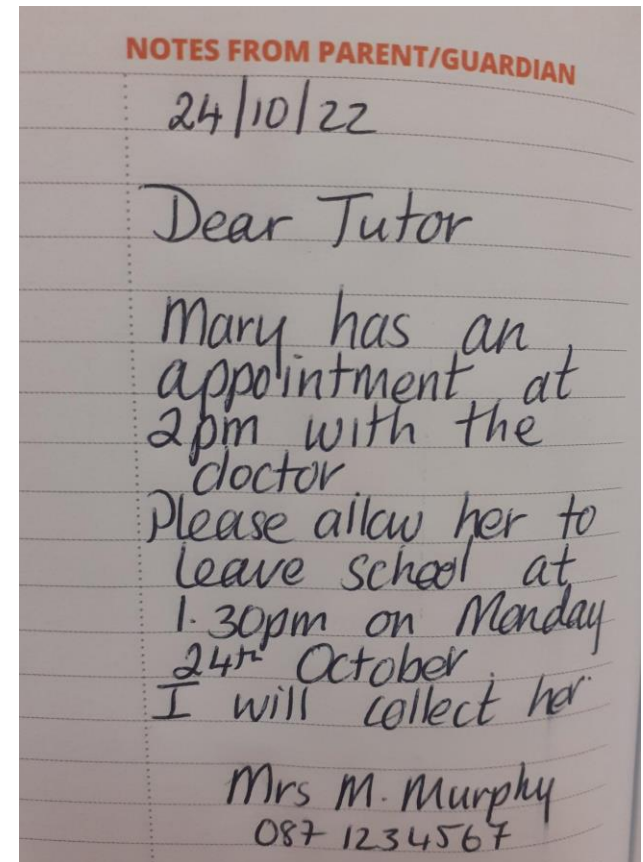 NOTES FROM PARENT/GUARDIAN
24/10/22
Dear Tutor
Mary has an
appointment at
2pm with the
doctor
Please allow her to
leave school at
1.30pm on Monday
24th October.
I will collect her
Mrs M. Murphy
087 1234567